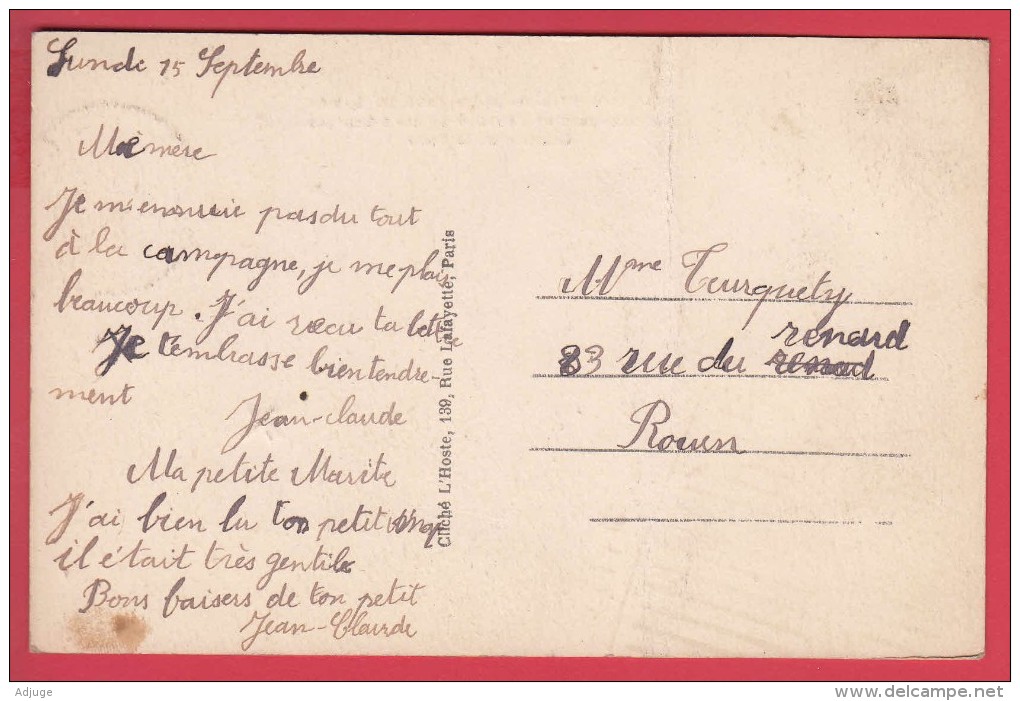 Lunde 15 Septembre
Mémère
Je m'ennuie pas du tout
à la campagne, je me plais
beaucoup. J'ai recu ta lettre
Je t'embrasse bien tendre-
ment
Jean-claude
Ma petite
J'ai bien lu ton petit
il était très gentile
Bons baisers de ton petit
Jean-Claude
Cliché L'Hoste, 139, Rue Lafayette, Paris
Mme Tourquety
renard
83 rue du renard
Rouen
Adjuge
www.delcampe.net